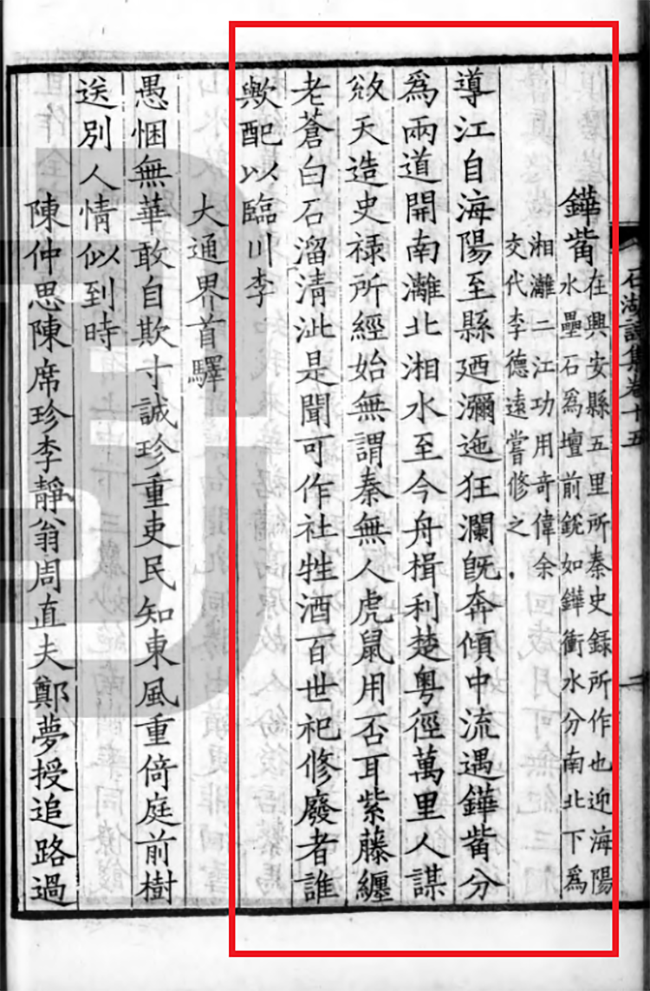 石湖詩集卷十五 二
鏵觜
在興安縣五里所秦史録所作也迎海陽
水壘石爲壇前銳如鏵衝水分南北下爲
湘灕二江功用奇偉余
交代李德遠嘗修之
導江自海陽至縣廼瀰迤狂瀾旣奔傾中流遇鏵觜分
爲兩道開南灕北湘水至今舟楫利楚粤徑萬里人謀
敓天造史禄所經始無謂秦無人虎鼠用否耳紫藤纏
老蒼白石溜清泚是聞可作社牲酒百世祀修廢者誰
歟配以臨川李
大通界首驛
愚悃無華敢自欺寸誠珍重吏民知東風重倚庭前樹
送別人情似到時
陳仲思陳席珍李靜翁周直夫鄭夢授追路過